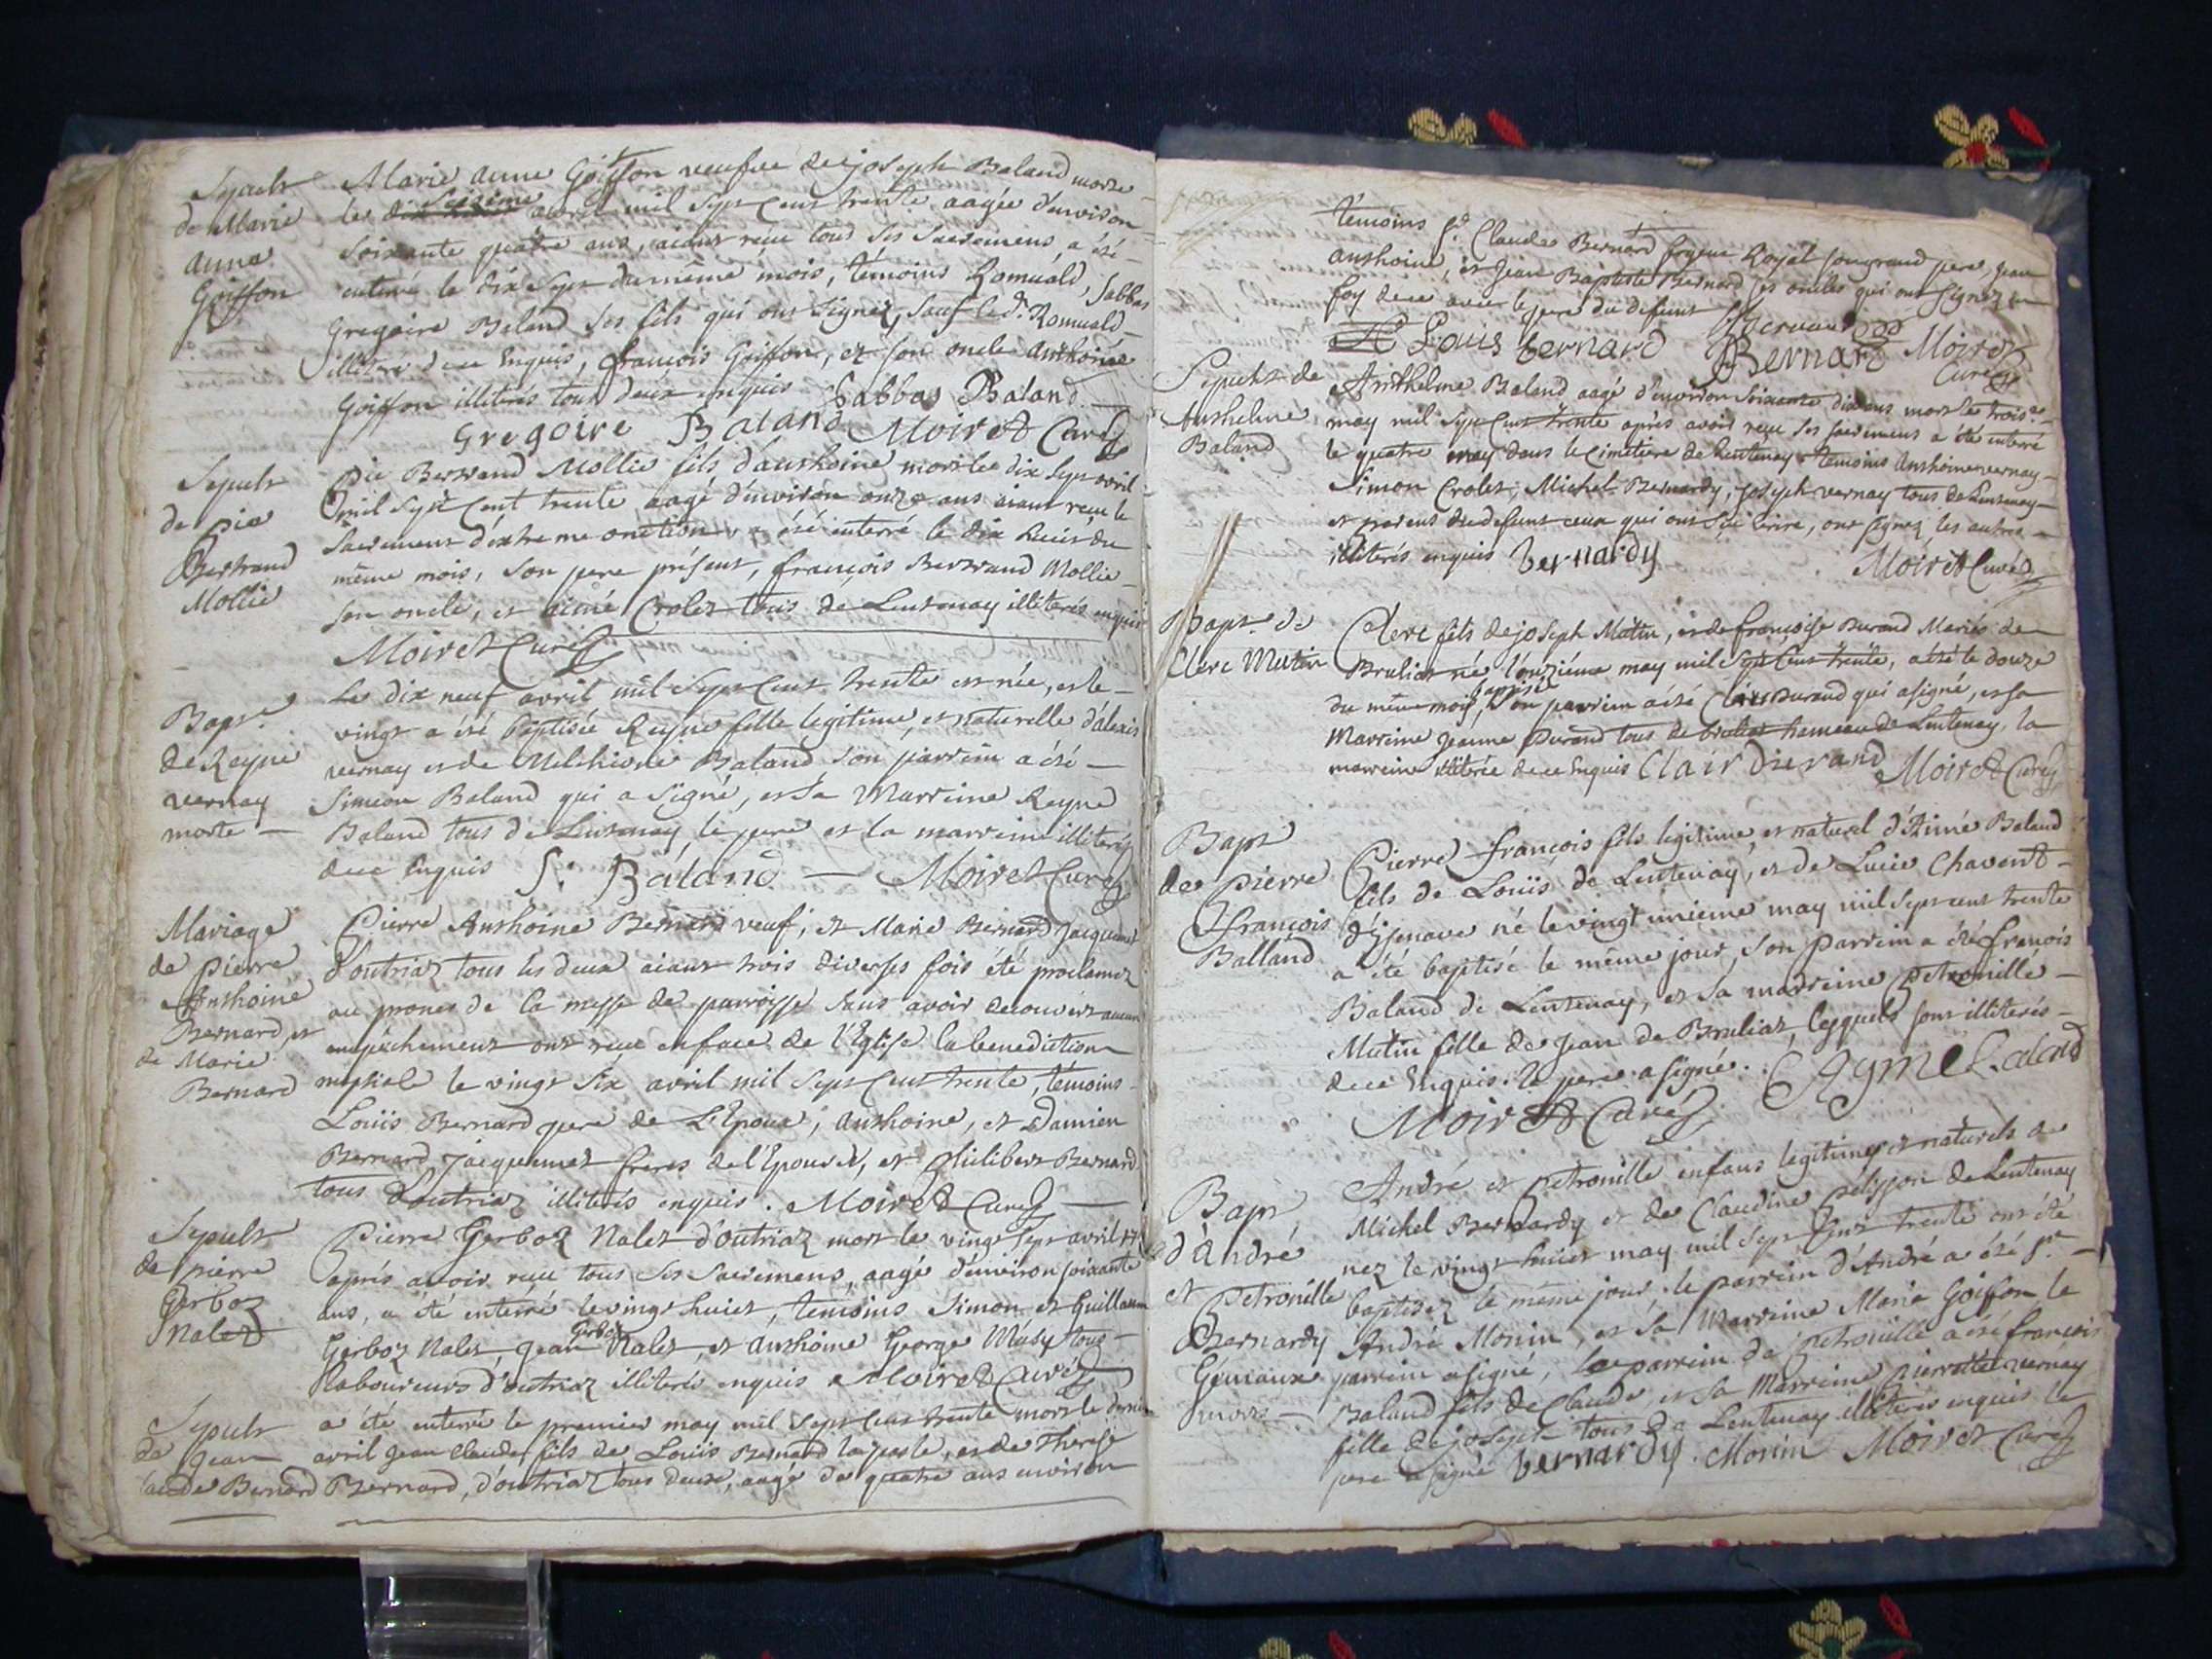 Sepult
de Marie
Anne
Goiffon
Marie Anne Goiffon veufve de joseph Baland morte
le Seizième avril mil Sept Cent trente aagée d'environ
Soixante quatre ans, aiant reçu tous ses Sacremens a été
enterré le dix Sept du même mois, témoins Romuald, Sabbas
Gregoire Baland Ses fils qui ont Signez, Sauf le d.t Romuald
illiteré de ce Enquis, françois Goiffon, et son oncle Anthoine
Goiffon illiterés tous deux enquis Sabbas Baland
Gregoire Baland Moiret Curé
Sepult
de pie
Bertrand
Mollie
Pie Bertrand Mollie fils d'anthoine mort le dix Sept avril
mil Sept Cent trente aagé d'environ onze ans aiant reçu le
Sacrement d'extreme onction a été enterré le dix huict du
même mois, Son pere présent, françois Bertrand Mollie
son oncle, et aimé Crolet tous de Lentenay illiterés enquis
Moiret Curé
Bapt.e
de Reyne
vernay
morte
Le dix neuf avril mil Sept Cent trente est née, et le
vingt a été baptisée Reyne fille legitime, et naturelle d'alexis
vernay et de Melchione Baland Son parrein a été
Simeon Baland qui a Signé, et Sa Marreine Reyne
Baland tous de Lentenay, le pere et la marreine illiterés
de ce Enquis S. Baland Moiret Curé
Mariage
de Pierre
Anthoine
Bernard, et
de Marie
Bernard
Pierre Anthoine Bernard veuf, et Marie Bernard Jacquemet
d'outriaz tous les deux aiant trois diverses fois été proclamez
au prones de la messe de parroisse Sans avoir decouvert aucun
empêchement ont reçu en face de l'Eglise la benediction
nuptiale le vingt Six avril mil Sept Cent trente, témoins
Loüis Bernard pere de L'Epoux, Anthoine, et Damien
Bernard Jacquemet freres de l'Epouse, et Philibert Bernard
tous d'outriaz illiterés enquis. Moiret Curé
Sepult
de Pierre
Gerboz
Nalet
Pierre Gerboz Nalet d'outriaz mort le vingt Sept avril
aprés avoir reçu tous Ses Sacremens, aagé d'environ soixante
ans, a été enterré le vingt huict, temoins Simon et Guillaume
Gerboz Nalet, Jean Gerboz Nalet, et Anthoine George Musy tous
laboureurs d'outriaz illiterés enquis Moiret Curé
Sepult
de Jean
Claude Bernard
a été enterré le premier may mil Sept Cent trente mort le dernier
avril Jean Claude fils de Loüis Bernard, et de Therese
Bernard, d'outriaz tous deux, aagé de quatre ans environ
témoins S.r Claude Bernard Royal son grand pere, Jean
Anthoine, et Jean Baptiste Bernard ses oncles qui ont signez en
foy de ce avec le pere du defunt
Louis bernard Bernard Moiret
Curé
Sepult de
Anthelme
Baland
Anthelme Baland aagé d'environ Soixante dix ans mort le trois.e
may mil Sept Cent trente aprés avoir reçu Ses Sacremens a été enterré
le quatre may dans le Cimetiere de Lentenay temoins Anthoine vernay
Simon Crolet, Michel Bernardy, joseph vernay tous de Lentenay
et parens du defunt ceux qui ont Sçu écrire, ont signez les autres
illiterés enquis bernardy Moiret Curé
Bapt.e de
Clerc Mutin
Clerc fils de joseph Mutin, et de françoise Durand Mariés de
Bruliat né l'onzième may mil Sept Cent trente, a été le douze
du même mois baptisé, Son parrein a été Durand qui a signé, et sa
Marreine Jeanne Durand tous de Bruliat hameau de Lentenay, la
marreine illiterée de ce Enquis Clair Durand Moiret Curé
Bapt
de Pierre
François
Balland
Pierre François fils legitime, et naturel d'Aimé Baland
fils de Loüis de Lentenay, et de Lucie Chavent
d'Izenave né le vingt unieme may mil Sept cent trente
a été baptisé le même jour, Son parrein a été françois
Baland de Lentenay, et Sa marreine Petronille
Mutin fille de Jean de Bruliat, lesquels sont illiterés
de ce Enquis. le pere a signé. Ayme Baland
Moiret Curé
Bapt
d'André
et Petronille
Bernardy
Gémeaux
morts
André et Petronille enfans legitimes et naturels de
Michel Bernardy et de Claudine Pelisson de Lentenay
nez le vingt huict may mil Sept Cent trente ont été
baptisez le même jour. le parrein d'André a été S.r
André Monin, et Sa Marreine Marie Goiffon le
parrein a signé, le parrein de Petronille a été françois
Baland fils de Claude, et Sa Marreine Pierrette vernay
fille de joseph tous de Lentenay illiterés enquis le
pere a signé bernardy. Monin Moiret Curé